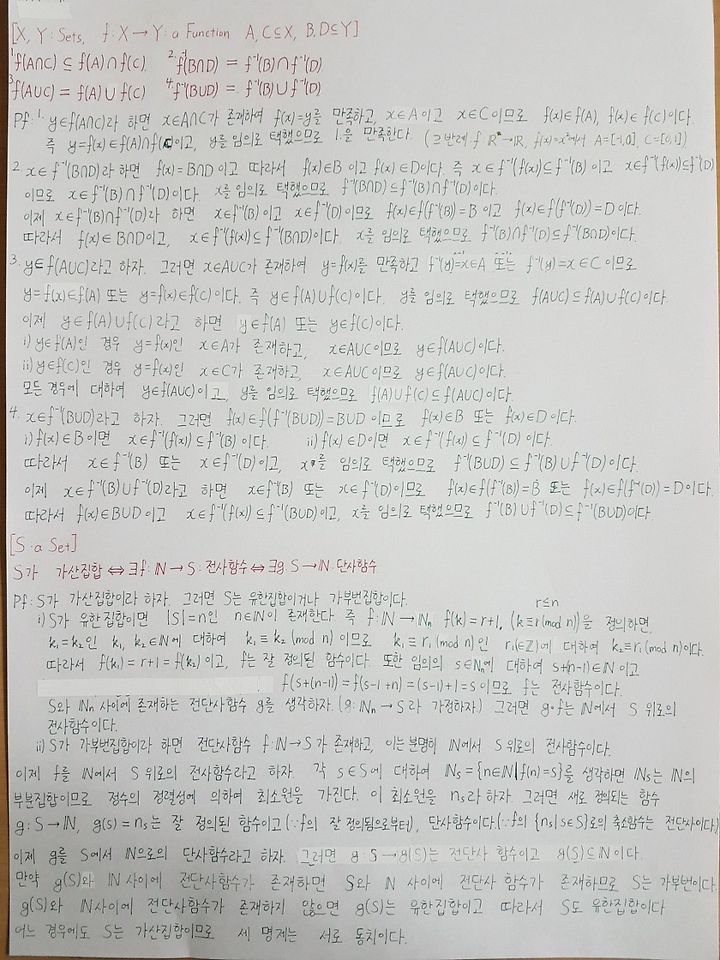 [X, Y : Sets, f : X → Y : a Function A, C ⊆ X, B, D ⊆ Y]
1. f(A∩C) ⊆ f(A)∩f(C) 2. f⁻¹(B∩D) = f⁻¹(B)∩f⁻¹(D)
3. f(A∪C) = f(A)∪f(C) 4. f⁻¹(B∪D) = f⁻¹(B)∪f⁻¹(D)
Pf: 1. y∈f(A∩C)라 하면 x∈A∩C가 존재하여 f(x)=y를 만족하고, x∈A이고 x∈C이므로 f(x)∈f(A), f(x)∈f(C)이다.
즉 y=f(x)∈f(A)∩f(C)이고, y를 임의로 택했으므로 1.을 만족한다. (⊇반례 f: R→R, f(x)=x²에서 A=[-1,0], C=[0,1])
2. x∈f⁻¹(B∩D)라 하면 f(x)=B∩D이고 따라서 f(x)∈B이고 f(x)∈D이다. 즉 x∈f⁻¹(f(x))⊆f⁻¹(B)이고 x∈f⁻¹(f(x))⊆f⁻¹(D)
이므로 x∈f⁻¹(B)∩f⁻¹(D)이다. x를 임의로 택했으므로 f⁻¹(B∩D)⊆f⁻¹(B)∩f⁻¹(D)이다.
이제 x∈f⁻¹(B)∩f⁻¹(D)라 하면 x∈f⁻¹(B)이고 x∈f⁻¹(D)이므로 f(x)∈f(f⁻¹(B))=B이고 f(x)∈f(f⁻¹(D))=D이다.
따라서 f(x)∈B∩D이고, x∈f⁻¹(f(x))⊆f⁻¹(B∩D)이다. x를 임의로 택했으므로 f⁻¹(B)∩f⁻¹(D)⊆f⁻¹(B∩D)이다.
3. y∈f(A∪C)라고 하자. 그러면 x∈A∪C가 존재하여 y=f(x)를 만족하고 f⁻¹(y)=x∈A 또는 f⁻¹(y)=x∈C이므로
y=f(x)∈f(A) 또는 y=f(x)∈f(C)이다. 즉 y∈f(A)∪f(C)이다. y를 임의로 택했으므로 f(A∪C)⊆f(A)∪f(C)이다.
이제 y∈f(A)∪f(C)라고 하면 y∈f(A) 또는 y∈f(C)이다.
i) y∈f(A)인 경우 y=f(x)인 x∈A가 존재하고, x∈A∪C이므로 y∈f(A∪C)이다.
ii) y∈f(C)인 경우 y=f(x)인 x∈C가 존재하고, x∈A∪C이므로 y∈f(A∪C)이다.
모든 경우에 대하여 y∈f(A∪C)이고, y를 임의로 택했으므로 f(A)∪f(C)⊆f(A∪C)이다.
4. x∈f⁻¹(B∪D)라고 하자. 그러면 f(x)∈f(f⁻¹(B∪D))=B∪D이므로 f(x)∈B 또는 f(x)∈D이다.
i) f(x)∈B이면 x∈f⁻¹(f(x))⊆f⁻¹(B)이다. ii) f(x)∈D이면 x∈f⁻¹(f(x))⊆f⁻¹(D)이다.
따라서 x∈f⁻¹(B) 또는 x∈f⁻¹(D)이고, x를 임의로 택했으므로 f⁻¹(B∪D)⊆f⁻¹(B)∪f⁻¹(D)이다.
이제 x∈f⁻¹(B)∪f⁻¹(D)라고 하면 x∈f⁻¹(B) 또는 x∈f⁻¹(D)이므로 f(x)∈f(f⁻¹(B))=B 또는 f(x)∈f(f⁻¹(D))=D이다.
따라서 f(x)∈B∪D이고 x∈f⁻¹(f(x))⊆f⁻¹(B∪D)이고, x를 임의로 택했으므로 f⁻¹(B)∪f⁻¹(D)⊆f⁻¹(B∪D)이다.
[S : a Set]
S가 가산집합 ⇔ ∃f: ℕ→S : 전사함수 ⇔ ∃g S→ℕ: 단사함수
Pf: S가 가산집합이라 하자. 그러면 S는 유한집합이거나 가부번집합이다. r≤n
i) S가 유한집합이면 |S|=n인 n∈ℕ이 존재한다. 즉 f: ℕ→ℕn f(k)=r+1, (k≡r(mod n))을 정의하면,
k₁=k₂인 k₁, k₂∈ℕ에 대하여 k₁≡k₂(mod n)이므로 k₁≡r₁(mod n)인 r₁(∈ℤ)에 대하여 k₂≡r₁(mod n)이다.
따라서 f(k₁)=r+1=f(k₂)이고, f는 잘 정의된 함수이다. 또한 임의의 s∈ℕn에 대하여 s+(n-1)∈ℕ이고
f(s+(n-1))=f(s-1+n)=(s-1)+1=s이므로 f는 전사함수이다.
S와 ℕn 사이에 존재하는 전단사함수 g를 생각하자.(g: ℕn→S라 가정하자.) 그러면 g∘f는 ℕ에서 S 위로의
전사함수이다.
ii) S가 가부번집합이라 하면 전단사함수 f: ℕ→S가 존재하고, 이는 분명히 ℕ에서 S 위로의 전사함수이다.
이제 f를 ℕ에서 S 위로의 전사함수라고 하자. 각 s∈S에 대하여 ℕs={n∈ℕ|f(n)=s}를 생각하면 ℕs는 ℕ의
부분집합이므로 정수의 정렬성에 의하여 최소원을 가진다. 이 최소원을 ns라 하자. 그러면 새로 정의되는 함수
g: S→ℕ, g(s)=ns는 잘 정의된 함수이고(∵f의 잘 정의됨으로부터), 단사함수이다(∵f의 {ns|s∈S}로의 축소함수는 전단사이다)
이제 g를 S에서 ℕ으로의 단사함수라고 하자. 그러면 g: S→g(S)는 전단사 함수이고 g(S)⊆ℕ이다.
만약 g(S)와 ℕ 사이에 전단사함수가 존재하면 S와 ℕ 사이에 전단사 함수가 존재하므로 S는 가부번이다.
g(S)와 ℕ사이에 전단사함수가 존재하지 않으면 g(S)는 유한집합이고 따라서 S도 유한집합이다
어느 경우에도 S는 가산집합이므로 세 명제는 서로 동치이다.